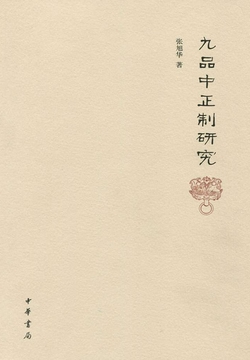 九品中正制研究
张旭华 著
中华书局